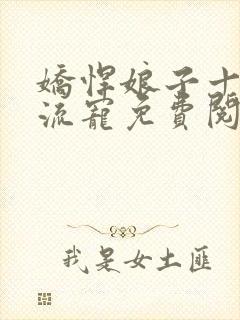 嬌悍娘子十
流寵免費閱
我是女土匪